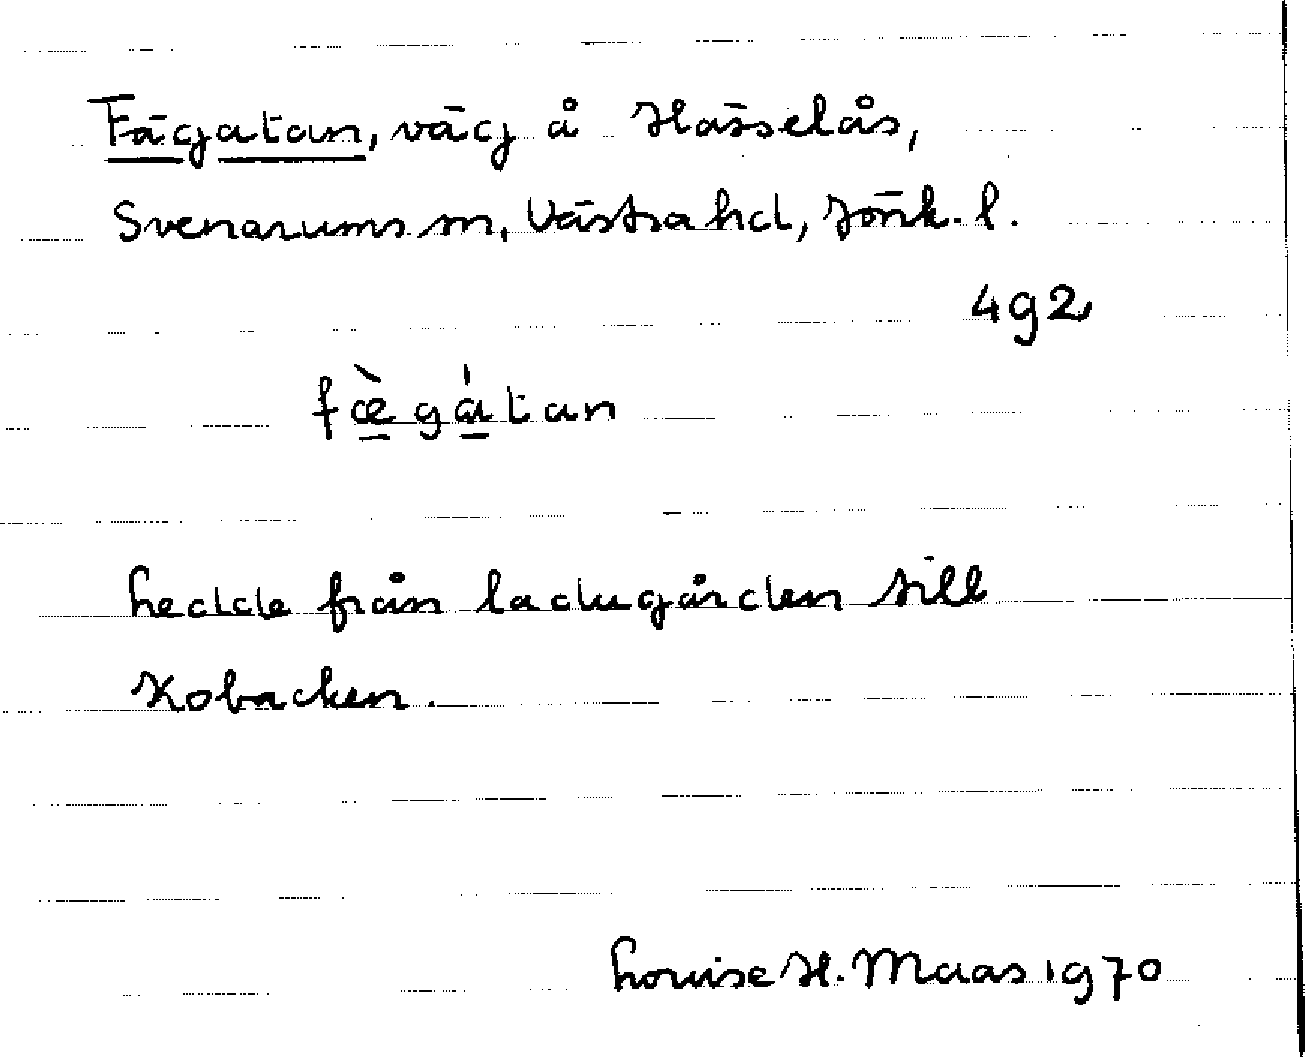 Fägatan, väg å Hässelås,
Svenarums sn, Västra hd, Jönk. l.
492
fæ̀gátan
hedde från ladugården till
Kobacken.
Louise H. Maas 1970